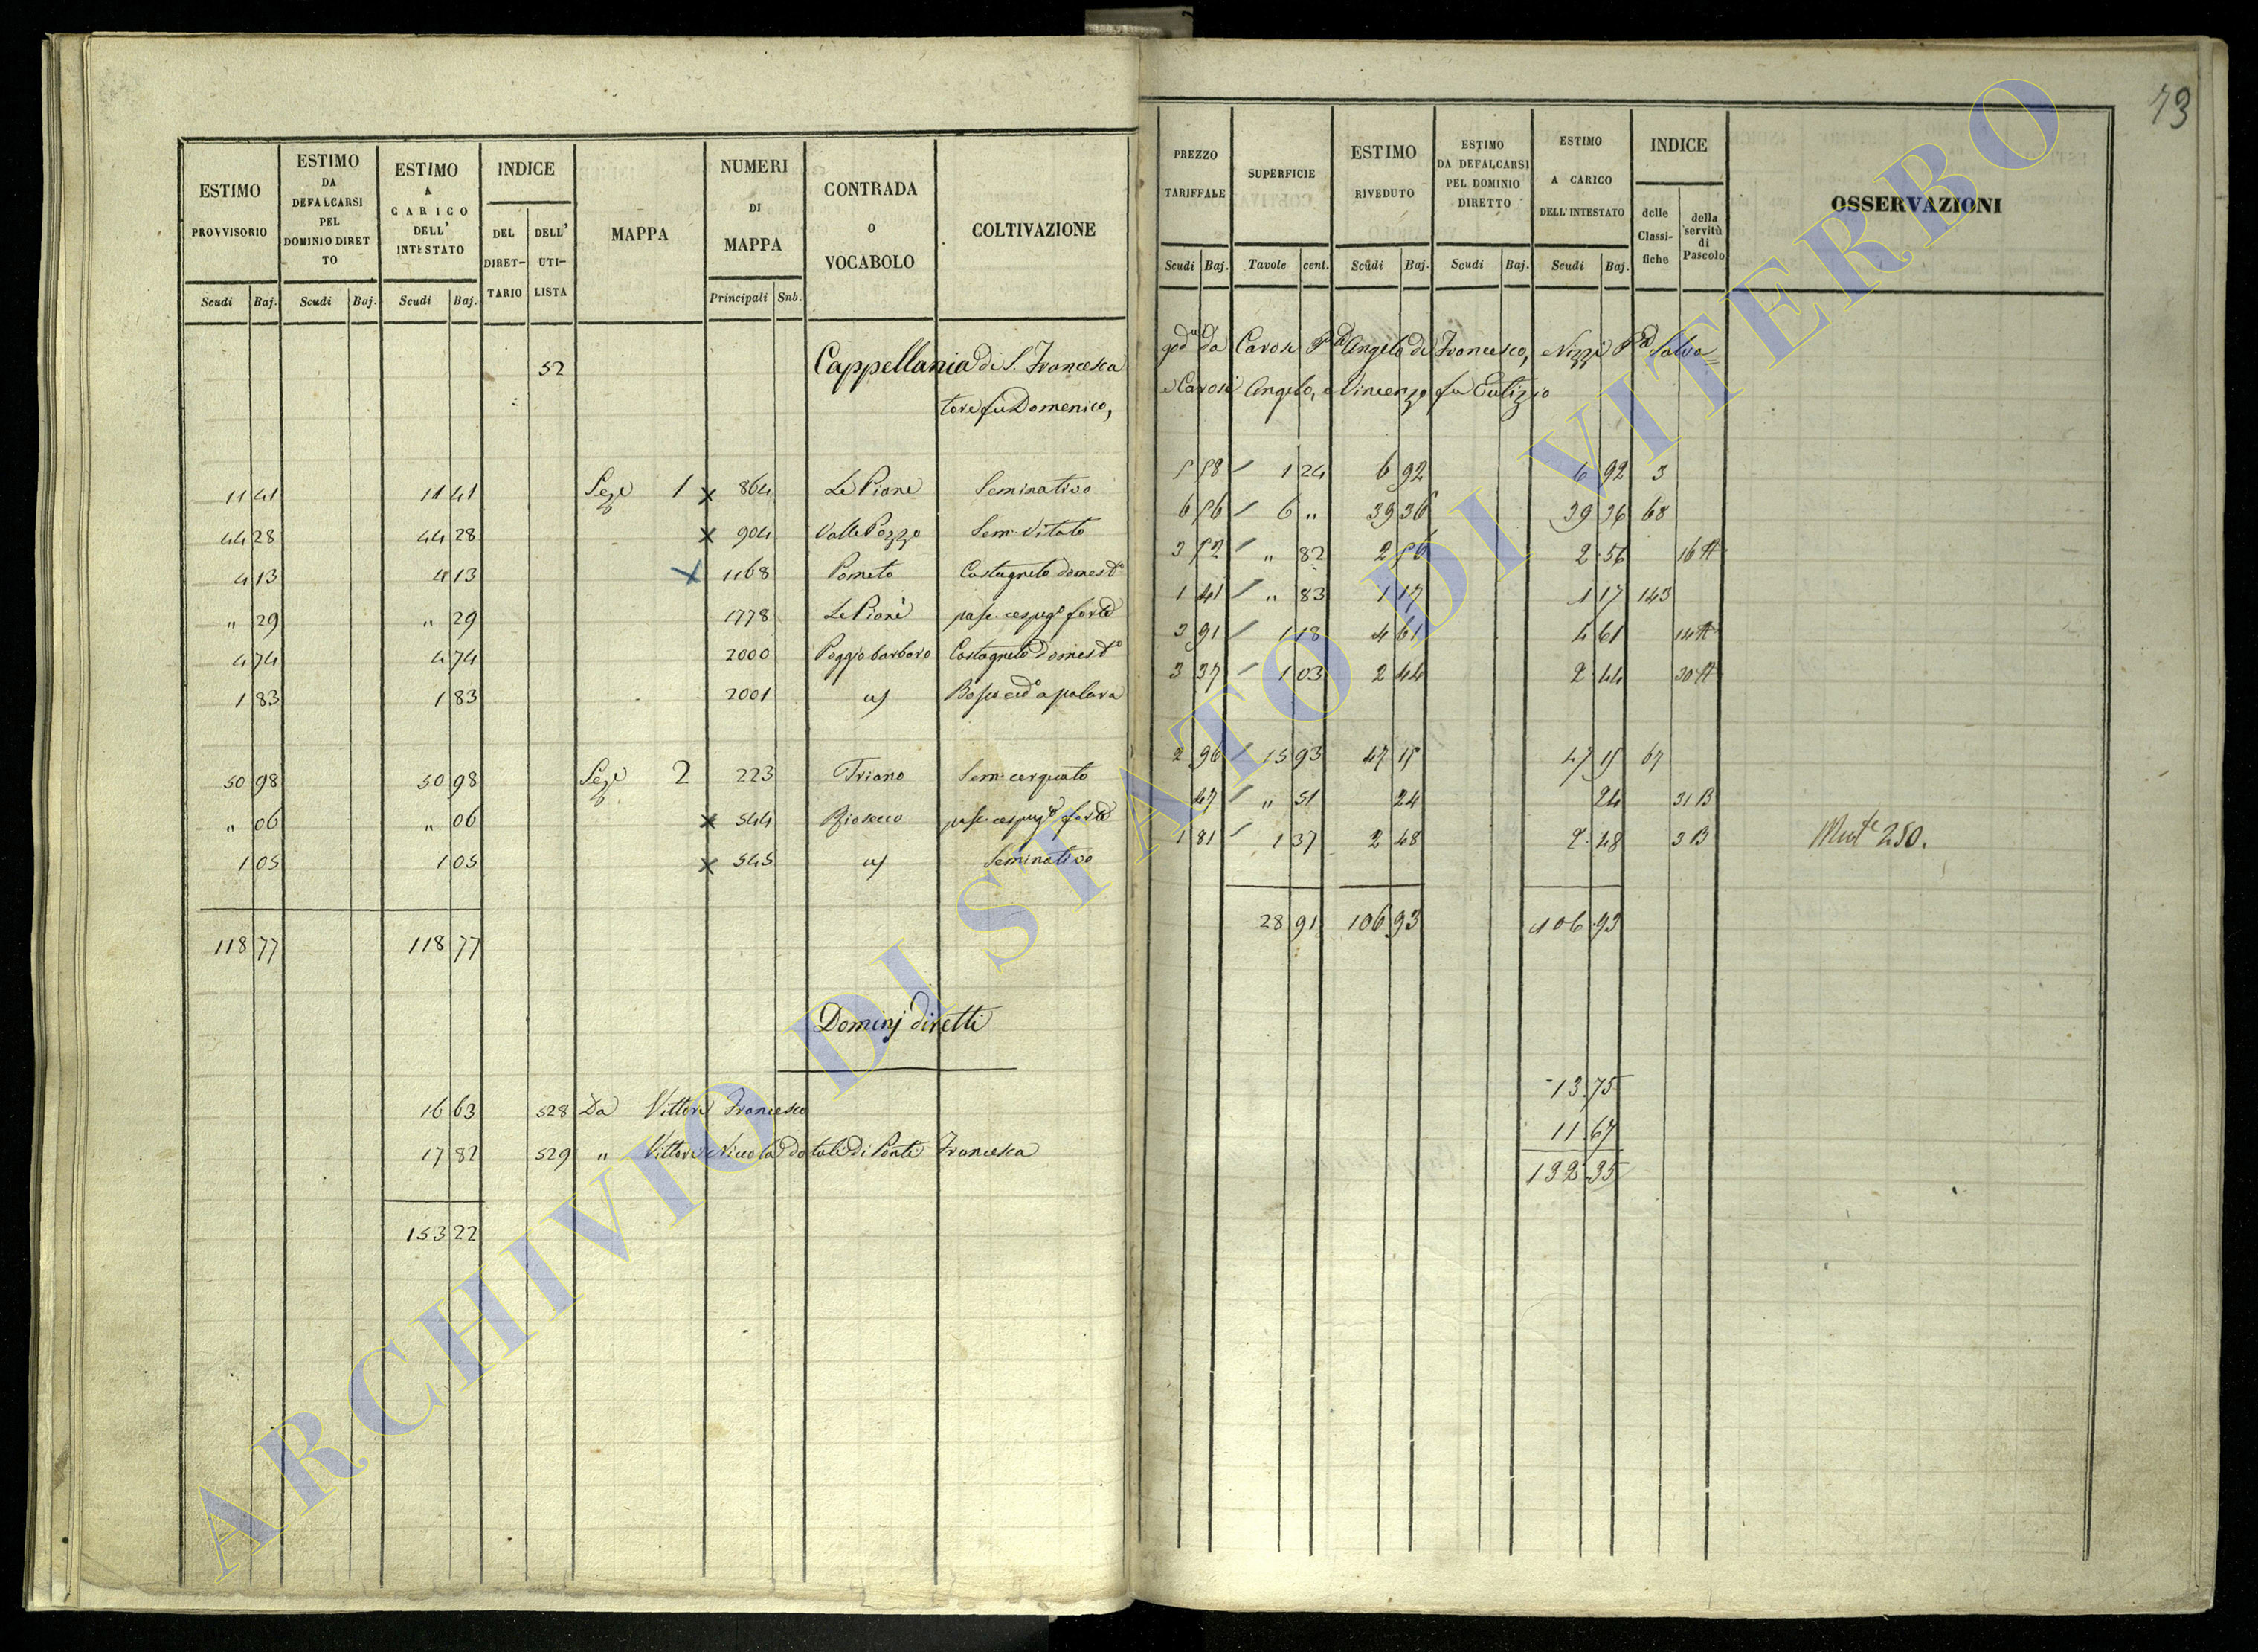 73
ESTIMO PROVVISORIO | ESTIMO DA DEFALCARSI PEL DOMINIO DIRETTO | ESTIMO A CARICO DELL' INTESTATO | INDICE | MAPPA | NUMERI DI MAPPA | CONTRADA O VOCABOLO | COLTIVAZIONE | PREZZO TARIFFALE | SUPERFICIE | ESTIMO RIVEDUTO | ESTIMO DA DEFALCARSI PEL DOMINIO DIRETTO | ESTIMO A CARICO DELL'INTESTATO | INDICE | OSSERVAZIONI
DEL DIRETTARIO | DELL' UTILISTA | delle Classifiche | della servitù di Pascolo
Scudi | Baj. | Scudi | Baj. | Scudi | Baj. | Principali | Snb. | Scudi | Baj. | Tavole | cent. | Scudi | Baj. | Scudi | Baj. | Scudi | Baj.
52 Cappellania di S. Francesca da Carosi Angelo di Francesco, Nizzi Salva=
tore fu Domenico, e Carosi Angelo, e Vincenzo fu Eutizio
11 41 | 11 41 | Seze 1 | x 864 | Le Piane | Seminativo | 5 58 | 1 24 | 6 92 | 6 92 | 3
44 28 | 44 28 | x 904 | Valle Pozzo | Sem. Vitato | 6 56 | 6 " | 39 36 | 39 36 | 68
4 13 | 4 13 | x 1168 | Pometo | Castagneto domesto | 3 52 | " 82 | 2 56 | 2 56 | 16 A
" 29 | " 29 | 1778 | Le Piane | pasc. cespugo forte | 1 41 | " 83 | 1 17 | 1 17 | 143
4 74 | 4 74 | 2000 | Poggio barbaro | Castagneto Domesto | 3 91 | 1 18 | 4 61 | 4 61 | 14 A
1 83 | 1 83 | 2001 | a) | Bosco cedo a palara | 3 37 | 1 03 | 2 44 | 2 44 | 30 A
50 98 | 50 98 | Seze 2 | 223 | Triano | Sem. cerquato | 2 96 | 15 93 | 47 15 | 47 15 | 67
" 06 | " 06 | x 544 | Riosecco | pasc. cespugo forte | 47 | " 51 | 24 | 24 | 31 B
1 05 | 1 05 | x 545 | a) | Seminativo | 1 81 | 1 37 | 2 48 | 2 48 | 3 B | Mute 250.
118 77 | 118 77 | 28 91 | 106 93 | 106 93
Dominj diretti
16 63 | 528 | Da Vittori Francesco | 13 75
17 82 | 529 | " Vittori Niccola dotale di Ponti Francesca | 11 67
153 22 | 132 35
ARCHIVIO DI STATO DI VITERBO